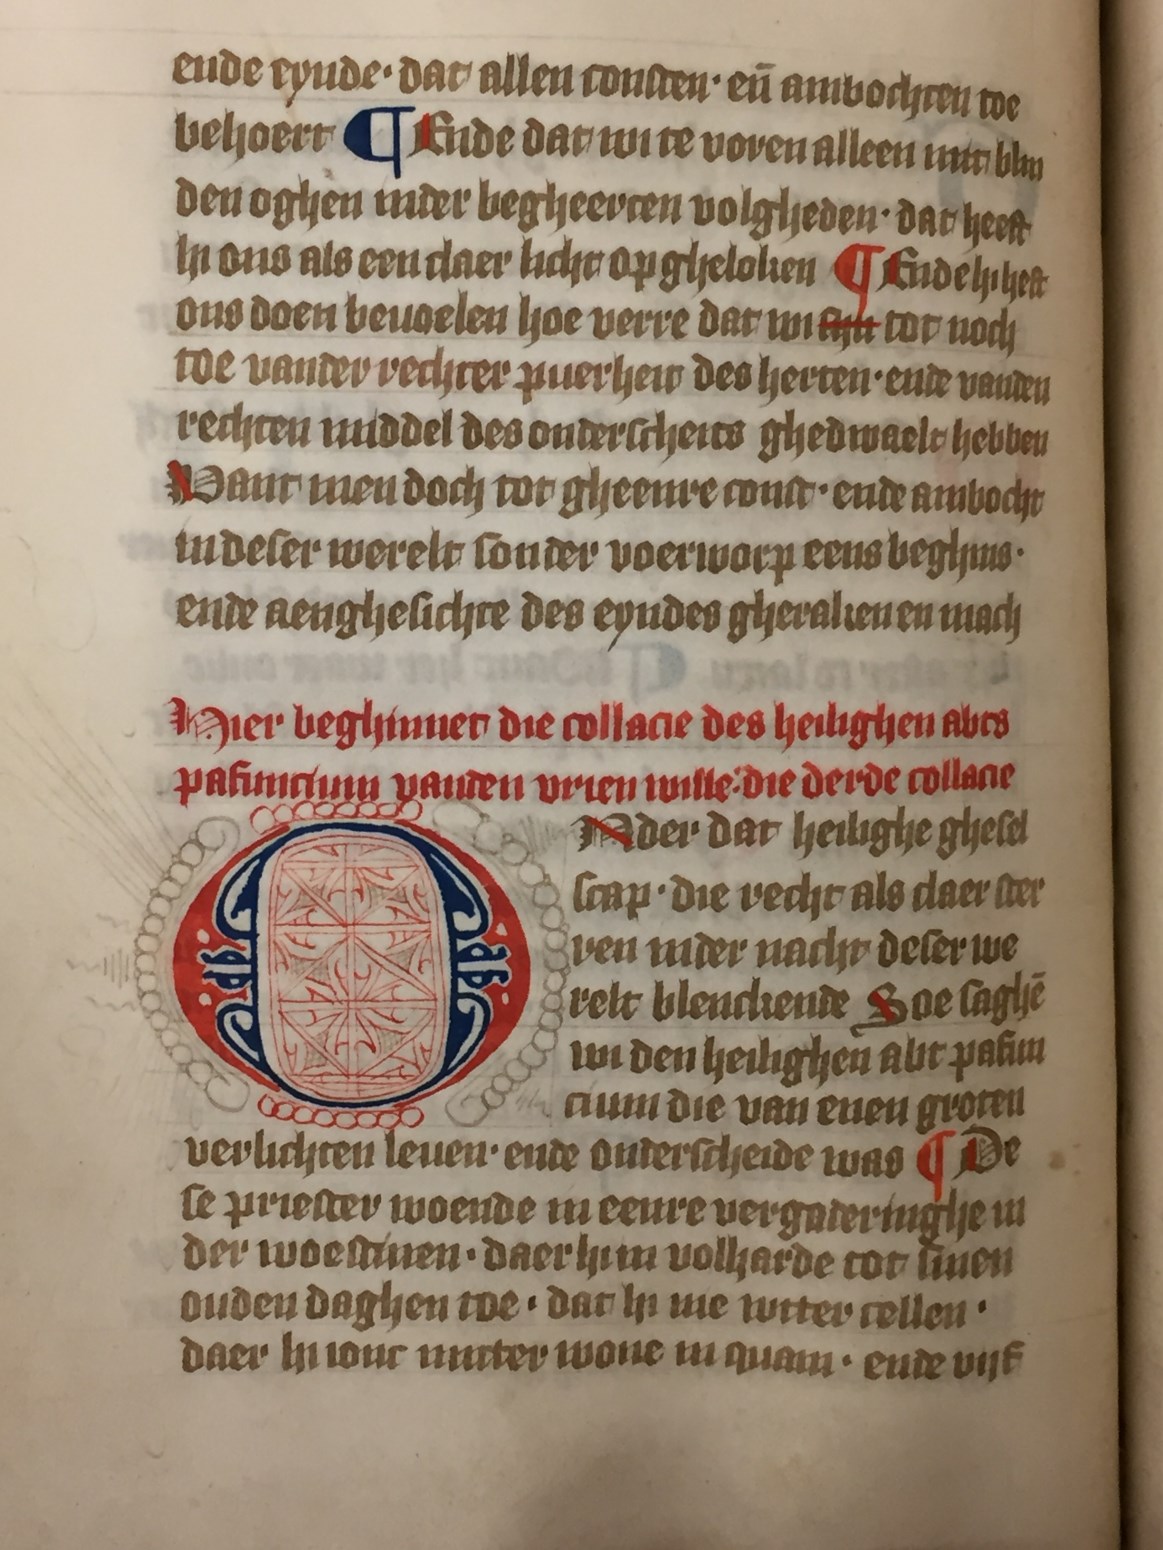 ende eynde· dat allen consten· en̄ ambochten toe
behoert ¶ Ende dat wi te voren alleen mit blin
den oghen inder begheerten volgheden· dat heeft
hi ons als een claer licht op gheloken ¶ Ende hi heft
ons doen beuoelen hoe verre dat wi sijn tot noch
toe vander rechter puerheit des herten· ende vanden
rechten middel des onderscheits ghedwaelt hebben
Want men doch tot gheenre const· ende ambocht
in deser werelt sonder voerworp eens beghins·
ende aenghesichte des eyndes gheraken en mach
Hier beghinnet die collacie des heilighen abts
pafuncium vanden vrien wille· die derde collacie
ONder dat heilighe ghesel
scap· die recht als claer ster
ren inder nacht deser we
relt blenckende Soe saghē
wi den heilighen abt pafun
cium die van enen groten
verlichten leuen· ende onderscheide was ¶ De
se priester woende in eenre vergaderinghe in
der woestinen· daer hi in volharde tot sinen
ouden daghen toe· dat hi nie witter cellen·
daer hi ionc mitter wone in quam· ende vijf